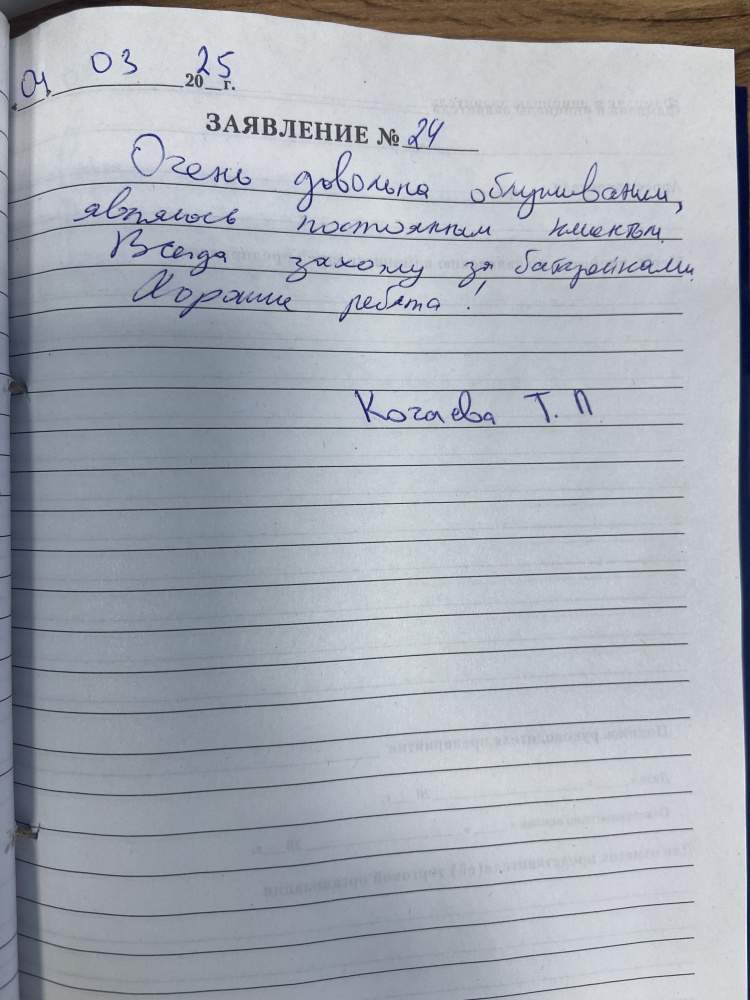 04 03 2025г.
ЗАЯВЛЕНИЕ № 24
Очень довольна облуживанием,
являюсь постоянным клиентом.
Всегда захожу за батарейками.
Хорошие ребята!
Кочаева Т. П